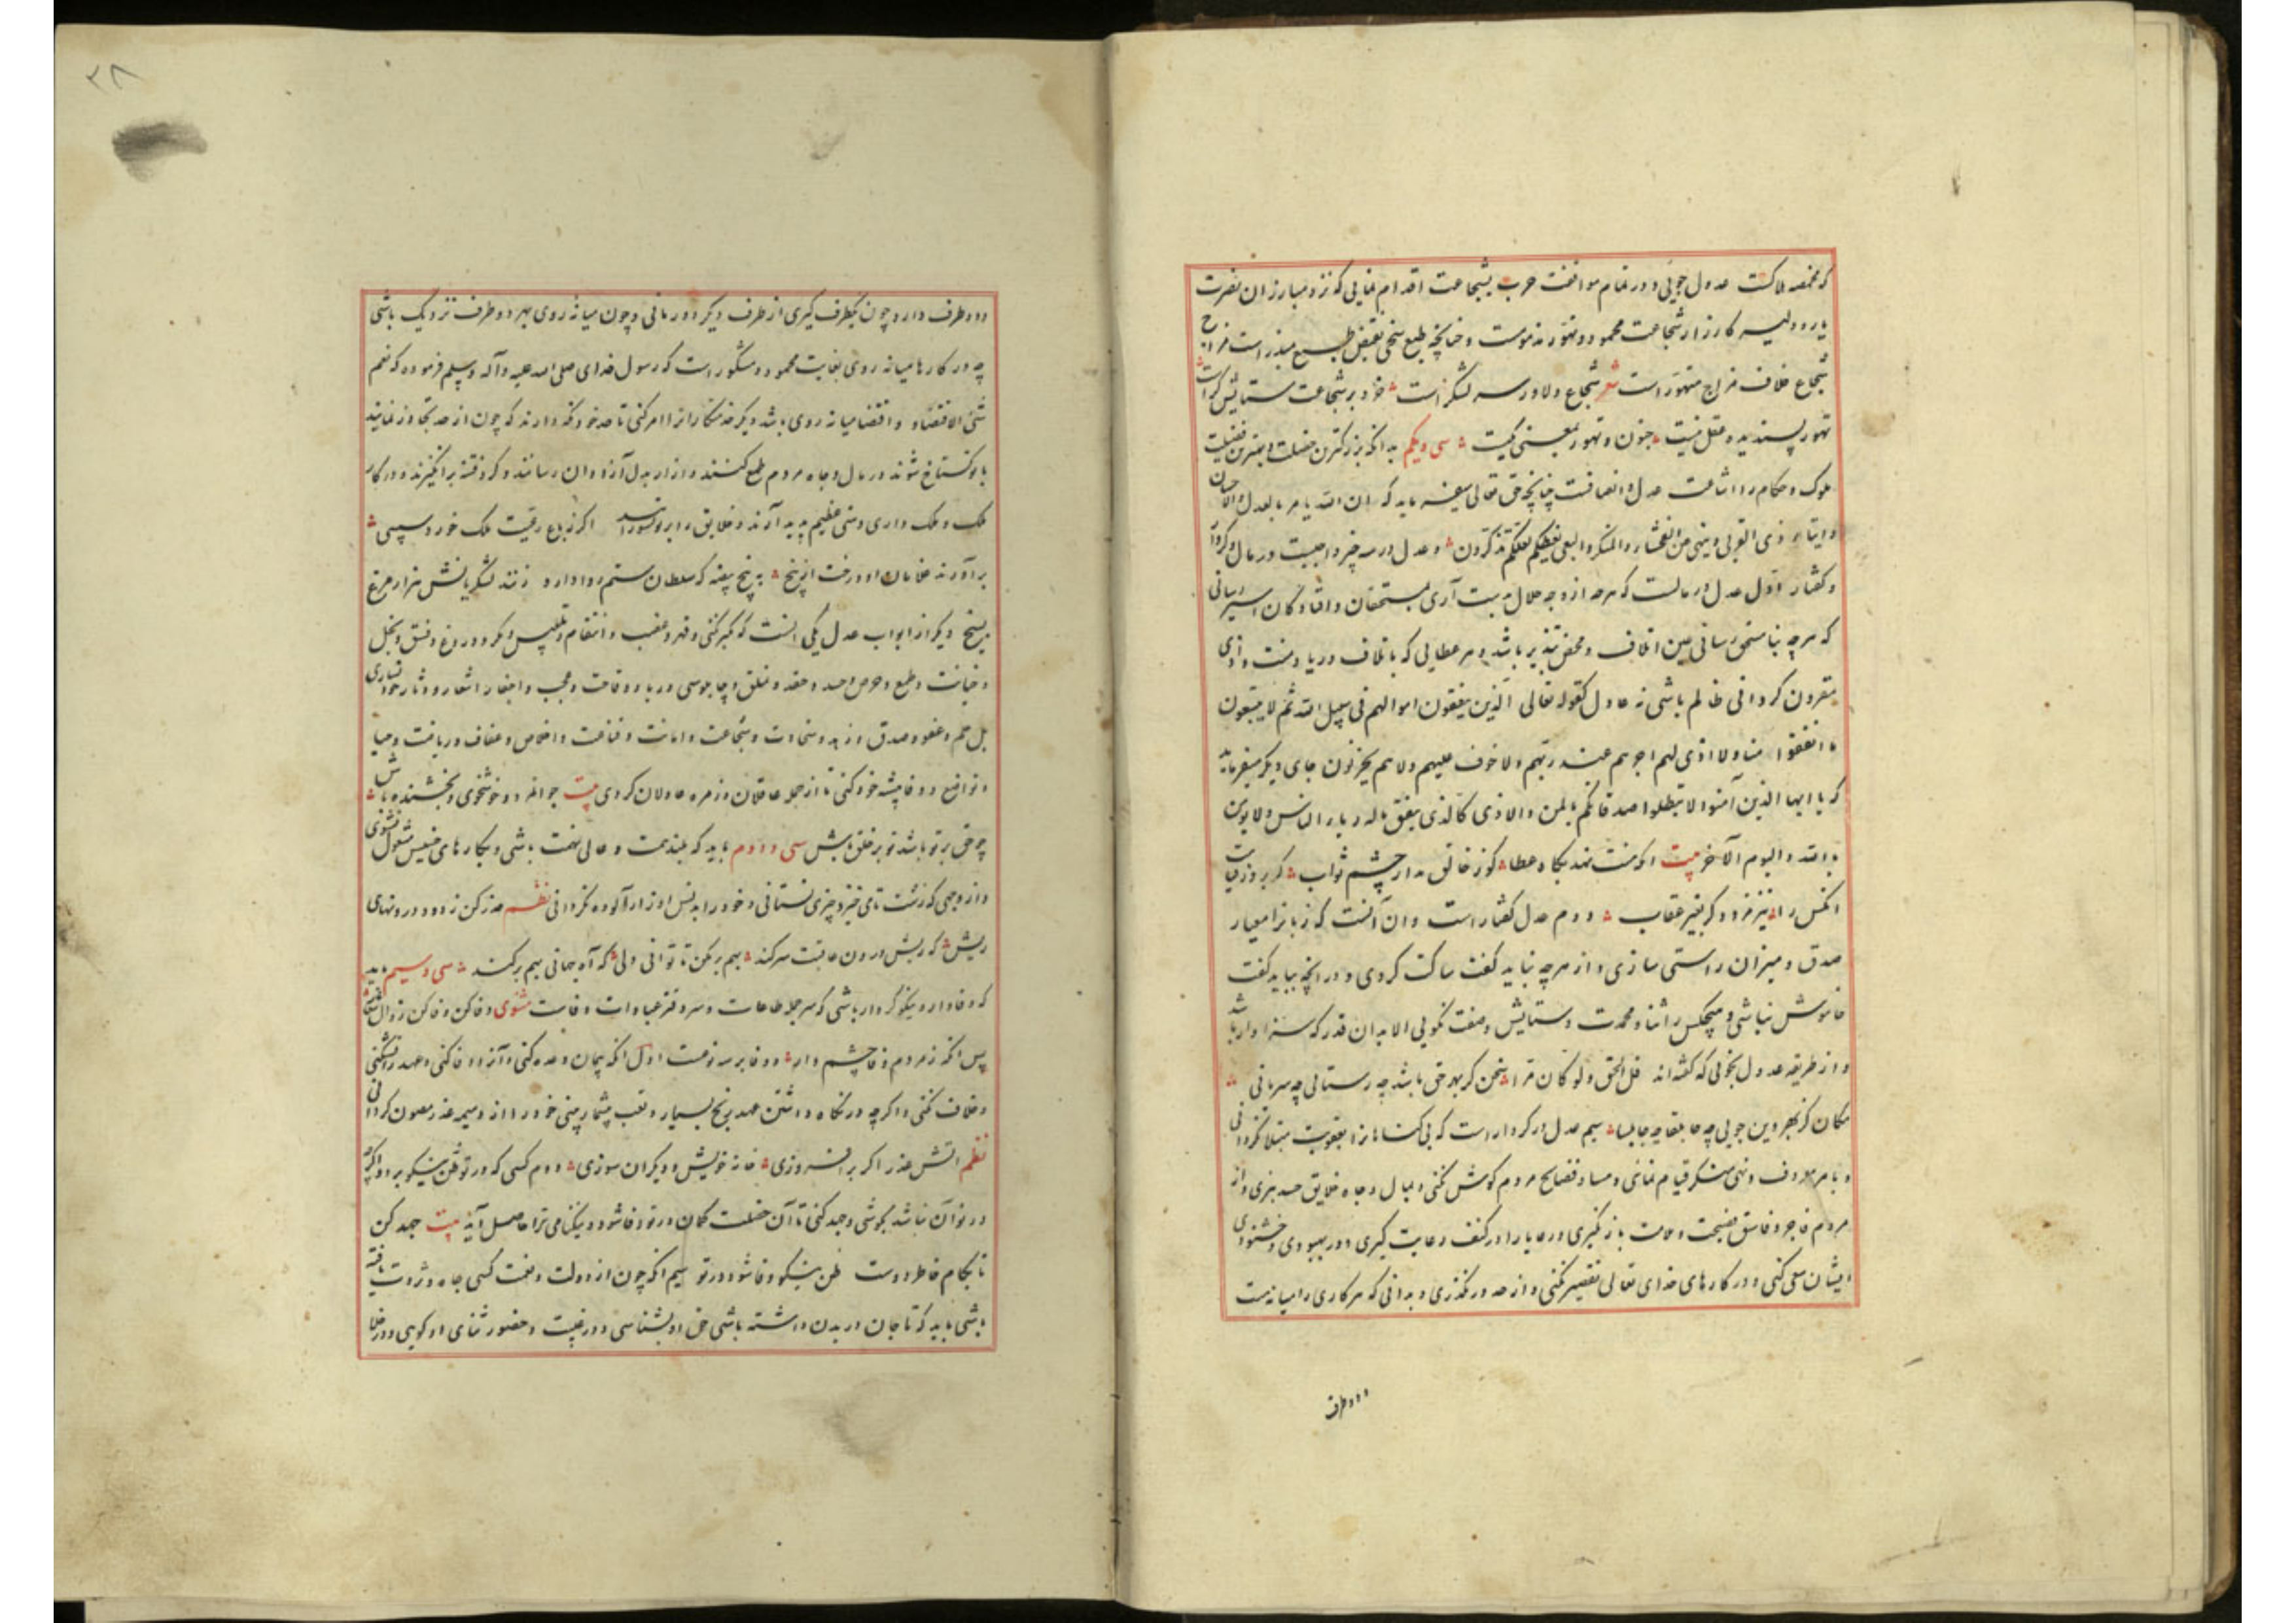 که مخمصه هلاکست عدول جویی و در مقام موافقت حرب بشجاعت اقدام نمایی که نزد مبارزان نصرت
یار و دلیر کارزار شجاعت محمود و تهور مذمومست و چنانچه طبع سخی نقیض طبع مبذر است مزاج
شجاع خلاف مزاج متهور است شعر شجاع و دلاور سر لشکر است خرد بر شجاعت ستایش
تهور پسندیده عقل نیست جنون و تهور بمعنی یکیست سی و یکم بدانکه بزرگترین خصلت و بهترین فضیلت
ملوک و حکام را اشاعت عدل و انصافست چنانچه حق تعالی میفرماید که ان الله یامر بالعدل والاحسان
وایتاء ذی القربی وینهی عن الفحشاء والمنکر والبغی یعظکم لعلکم تذکرون و عدل در سه چیز واجبست در مال و کردار
و گفتار اول عدل در مالست که هرچه از وجه حلال بدست آری بمستحقان و افتادگان رسانی
که هرچه بنامستحق رسانی عین اتلاف و محض تبذیر باشد و هر عطایی که باتلاف و ریا و منت و اذی
مقرون گردانی ظالم باشی نه عادل کقوله تعالی الذین ینفقون اموالهم فی سبیل الله ثم لا یتبعون
ما انفقوا منا ولا اذی لهم اجرهم عند ربهم ولا خوف علیهم ولا هم یحزنون جای دیگر میفرماید
که یا ایها الذین آمنوا لا تبطلوا صدقاتکم بالمن والاذی کالذی ینفق ماله ریاء الناس ولا یومن
بالله والیوم الآخر بیت که منت نهد بگاه عطا کو ز خالق مدار چشم ثواب که بروز
آنکس را نیز مزد بغیر عقاب دوم عدل گفتار است و آن آنست که زبانرا معیار
صدق و میزان راستی سازی و از هرچه نباید گفت ساکت گردی و در آنچه بباید گفت
خاموش نباشی و هیچکس را ثنا و محمدت و ستایش و صفت نگویی الا بدان قدر که سزاوار باشد
و از طریقه عدول نجویی که گفته‌اند قل الحق ولو کان مرا سخن کز بهر حق باشد چه سریانی
مکان کز بهر دین جویی چه جابلقا چه جابلسا سیم عدل در کردار است که بی‌گناهانرا بعقوبت مبتلا نگردانی
و بامر معروف و نهی منکر قیام نمائی و مساو فضایح مردم گوش نکنی و بمال و جاه خلایق حسد نبری و از
مردم فاجر و فاسق نصیحت و ملامت باز نگیری و رعایا را در کنف رعایت گیری و در بهبودی و خشنودی
ایشان سعی کنی و در کارهای خدای تعالی تقصیر نکنی و از حد در نگذری و بدانی که هر کاری را میانه‌یست
دو طرف
۲۸
و دو طرف دارد چون یکطرف گیری از طرف دیگر دور مانی و چون میانه روی بهر دو طرف نزدیک باشی
چه در کارها میانه روی بغایت محمود و مشکور است که رسول خدای صلی الله علیه وآله وسلم فرموده که نعم
شئ الاقتصاد و اقتصاد میانه روی باشد دیگر خدمتکارانرا امر کنی تا حد خود نگه دارند که چون از حد تجاوز نمایند
با تو گستاخ شوند در مال و جاه مردم طمع کنند و آزار بدل آزادان رسانند و گرد فتنه برانگیزند و در کار
ملک و ملک داری وهنی عظیم پدید آرند و خلایق را بر تو شورانند اگر ز باغ رعیت ملک خورد سیبی
برآورند غلامان او درخت از بیخ به پنج بیضه که سلطان ستم روا دارد زنند لشکریانش هزار مرغ
بسیخ دیگر از ابواب عدل یکی آنست که کبر نکنی و قهر و غضب و انتقام و تلبیس و مکر و دروغ و فسق و بخل
و خیانت و طمع و حرص و حسد و حقد و تملق و چاپلوسی و ریا و وقاحت و عجب و احتقار شعار و دثار خود نسازی
بل حلم و عفو و صدق و زهد و سخاوت و شجاعت و امانت و قناعت و اخلاص و عفاف و ریاضت و حیا
و تواضع و وفا پیشه خود کنی تا از جمله عاقلان و زمره عادلان گردی بیت جوانمرد و خوشخوی و بخشنده باش
چو حق بر تو باشد تو بر خلق باش سی و دوم باید که بلند همت و عالی نهمت باشی و بکارهای خسیس مشغول نشوی
و از وجهی که زشت نامی خیزد چیزی نستانی و خود را بدنس اوزار آلوده نگردانی نظم حذر کن ز دود درونهای
ریش که ریش درون عاقبت سر کند بهم بر مکن تا توانی دلی که آه جهانی بهم بر کند سی و سیم باید
که وفادار و نیکوکردار باشی که سر جمله طاعات و سر دفتر عبادات وفاست مثنوی وفا کن وفا کن
پس آنکه ز مردم وفا چشم دار و وفا بر سه نوعست اول آنکه پیمان و وعده کنی و آنرا وفا کنی و عهد را نشکنی
و خلاف نکنی و اگرچه در نگاه داشتن عهد رنج بسیار و تعب بیشمار بینی خود را از وسیمه غدر مصون گردانی
نظم آتش غدر اگر برافروزی خانه خویش و دیگران سوزی دوم کسی که در تو ظن نیکو برد و اگرچه
در تو آن نباشد بکوشی و جهد کنی تا آن خصلت گمان در تو وفا شود و نیکنامی ترا حاصل آید بیت جهد کن
تا بکام خاطر دوست ظن نیکو وفا شود در تو سیم آنکه چون از دولت و نعمت کسی جاه و ثروت یافته
باشی باید که تا جان در بدن داشته باشی حق او بشناسی و در غیبت و حضور ثنای او گویی و در خلا